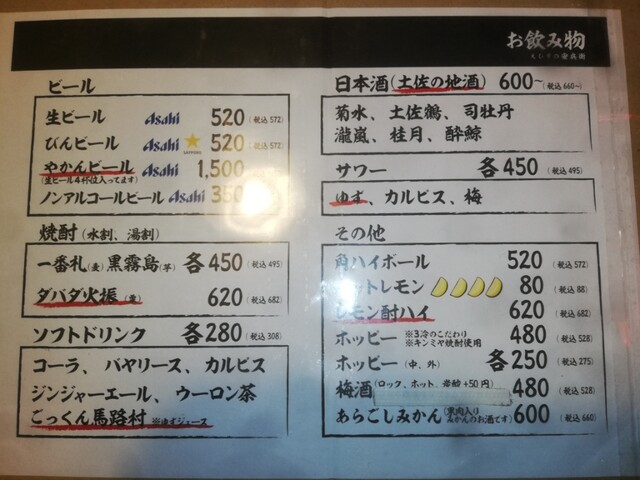 お飲み物
ビール
生ビール Asahi 520 (税込 572)
びんビール Asahi ★ 520 (税込 572)
やかんビール Asahi 1,500
(生ビール4杯位入ってます)
ノンアルコールビール Asahi 350
焼酎 (水割、湯割)
一番札(麦) 黒霧島(芋) 各450 (税込 495)
ダバダ火振 (栗) 620 (税込 682)
ソフトドリンク 各280 (税込 308)
コーラ、バヤリース、カルピス
ジンジャーエール、ウーロン茶
ごっくん馬路村 ※ゆずジュース
日本酒(土佐の地酒) 600~ (税込 660~)
菊水、土佐鶴、司牡丹
瀧嵐、桂月、酔鯨
サワー 各450 (税込 495)
ゆず、カルピス、梅
その他
角ハイボール 520 (税込 572)
ットレモン 80 (税込 88)
レモン酎ハイ 620 (税込 682)
ホッピー ※3冷のこだわり ※キンミヤ焼酎使用 480 (税込 528)
ホッピー (中、外) 各250 (税込 275)
梅酒 (ロック、ホット、炭酸+50円) 480 (税込 528)
あらごしみかん (果肉入り みかんのお酒です) 600 (税込 660)